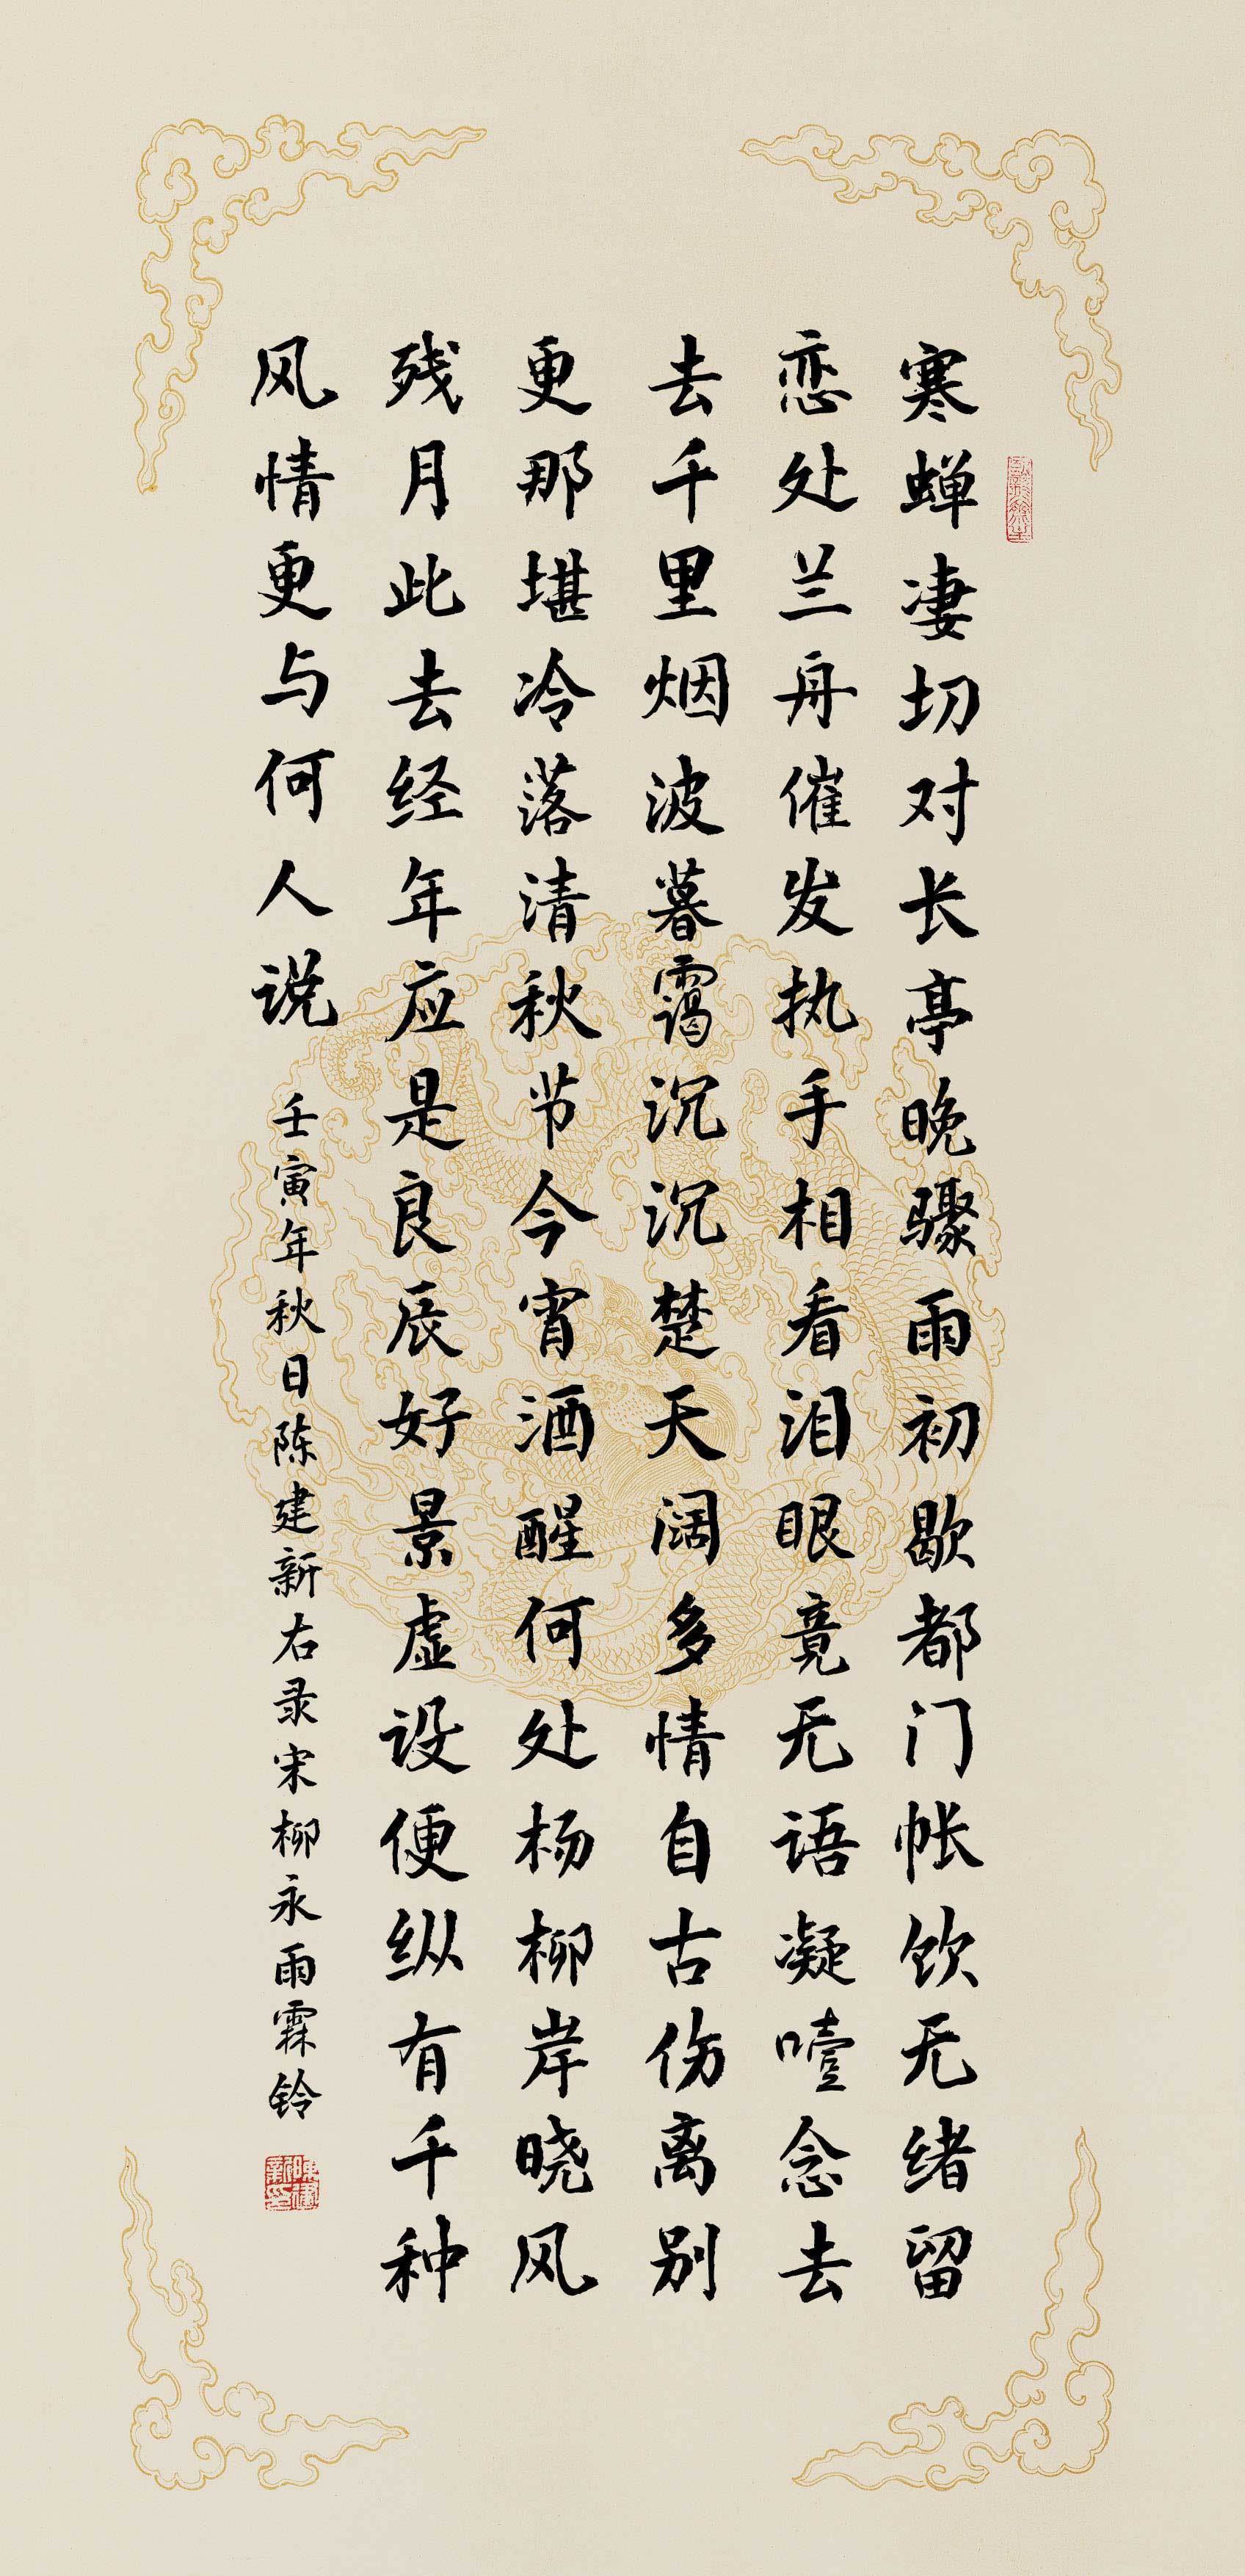 寒蝉凄切对长亭晚骤雨初歇都门帐饮无绪留
恋处兰舟催发执手相看泪眼竟无语凝噎念去
去千里烟波暮霭沉沉楚天阔多情自古伤离别
更那堪冷落清秋节今宵酒醒何处杨柳岸晓风
残月此去经年应是良辰好景虚设便纵有千种
风情更与何人说
壬寅年秋日陈建新右录宋柳永雨霖铃